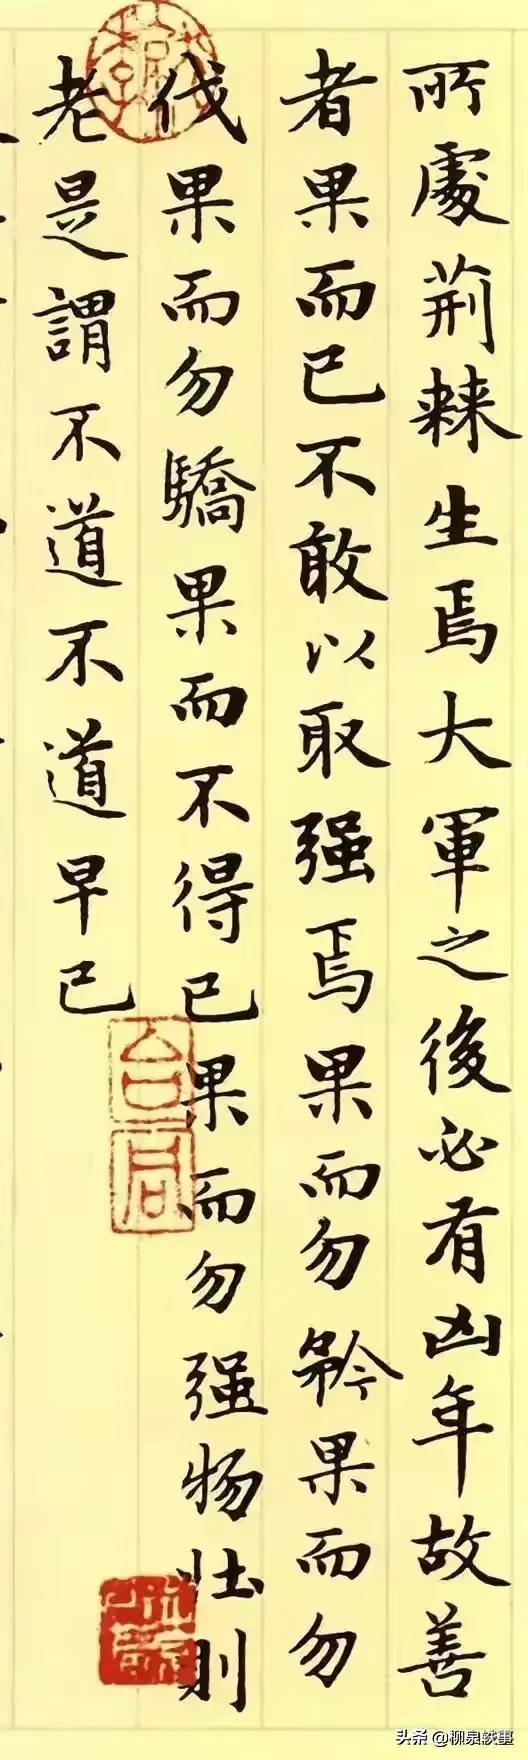 所處荊棘生焉大軍之後必有凶年故善
者果而已不敢以取强焉果而勿矜果而勿
伐果而勿驕果而不得已果而勿强物壯則
老是謂不道不道早已
头条 @柳泉轶事